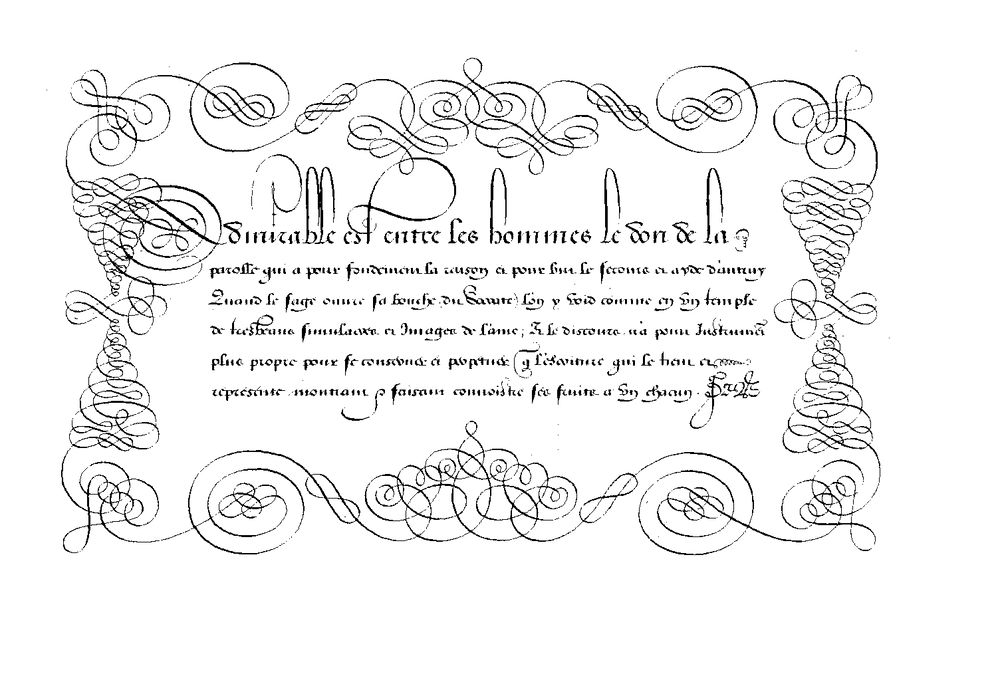 Admirable est entre les hommes le don de la
parolle qui a pour fondement la raison et pour but le secours et ayde d'autruy
Quand le sage ouure sa bouche, dit Socrate, lon y void comme en vn temple
de tresbeaus simulacres et Images de l'ame; Et le discours n'a pour Instrument
plus propre pour se conseruer et perpetuer q̃ l'escriture qui le tient et
represente montrant & faisant connoistre ses fruits a vn chacun.